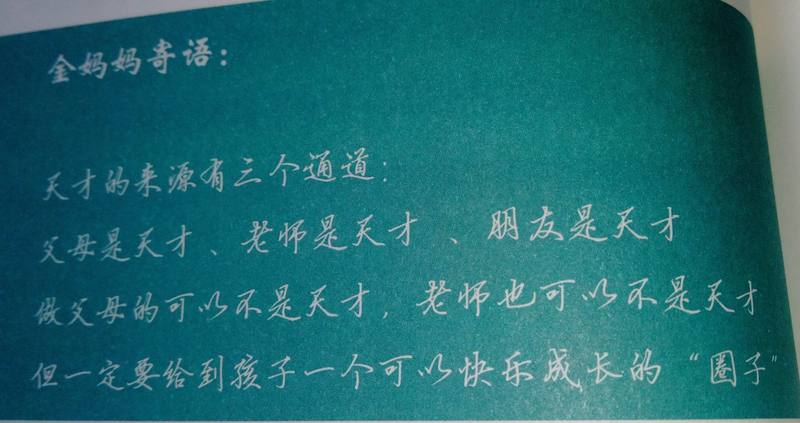 金妈妈寄语：
天才的来源有三个通道：
父母是天才、老师是天才、朋友是天才
做父母的可以不是天才，老师也可以不是天才
但一定要给到孩子一个可以快乐成长的“圈子”